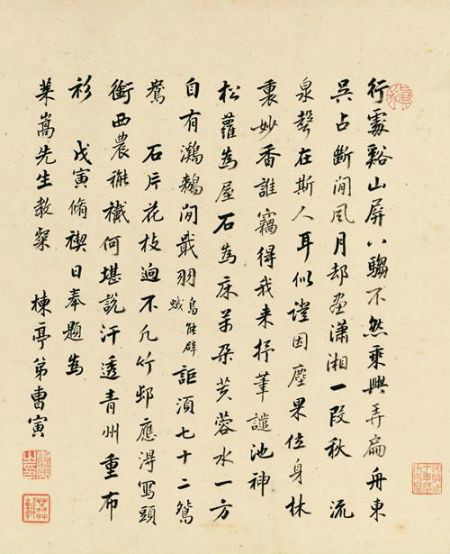 行谿山屏八騶不然乘興弄扁舟東
吳占斷閒風月却畫瀟湘一段秋 流
泉聲在斯人耳似證因塵果位身林
裏妙香誰竊得我来抒筆譴池神
松蘿為屋石為床萬朶芙蓉水一方
自有鸂鶒閒戢羽 能辟 詎須七十二鴛
鴦 石片花枝迥不凡竹邨應得寫頭
銜西農褦襶何堪說汗透青州重布
衫 戊寅脩禊日奉題為
萊嵩先生教粲 楝亭弟曹寅